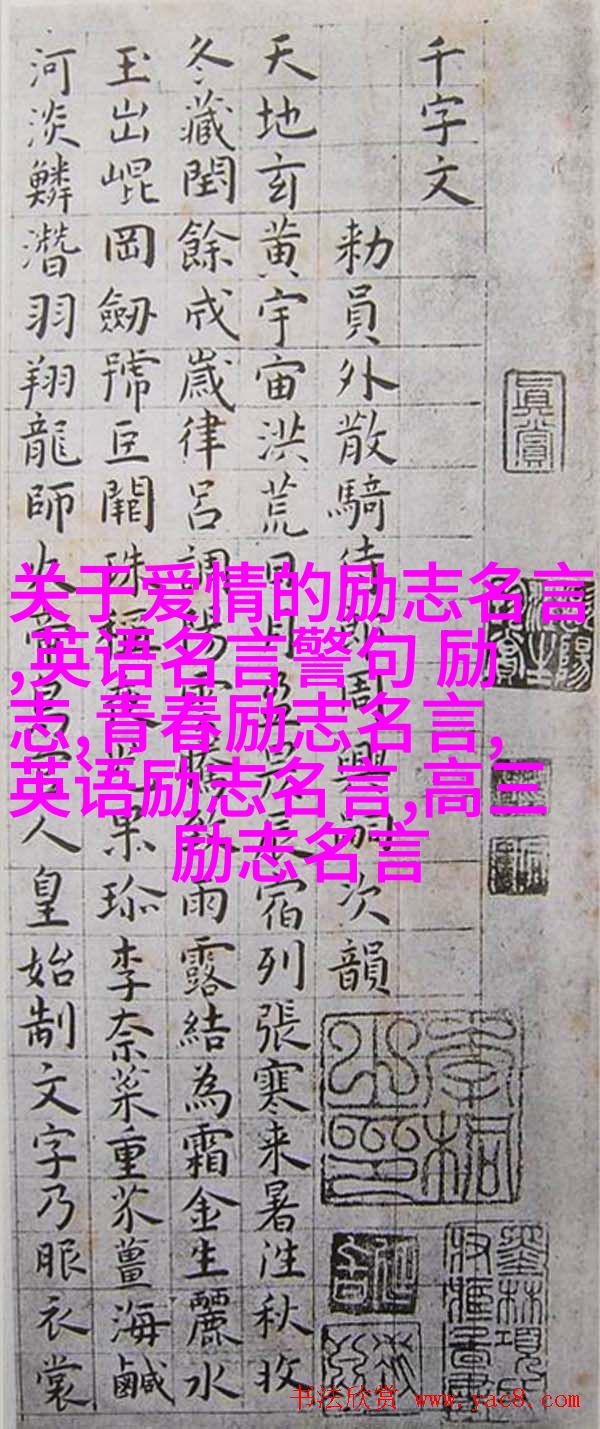 千字文
勑員外散騎侍周興嗣次韻
天地玄黃宇宙洪荒日月盈昃辰宿列張寒来暑往秋收
冬藏閏餘成歳律呂調陽雲騰致雨露結為霜金生麗水
玉出崐岡劒號巨闕珠稱夜光果珎李柰菜重芥薑海鹹
河淡鱗潛羽翔龍師火帝鳥官人皇始制文字乃服衣裳
真賞
关于爱情的励志名言
,英语名言警句 励
志,青春励志名言,
英语励志名言,高三
励志名言
书法欣赏 www.yac8.com